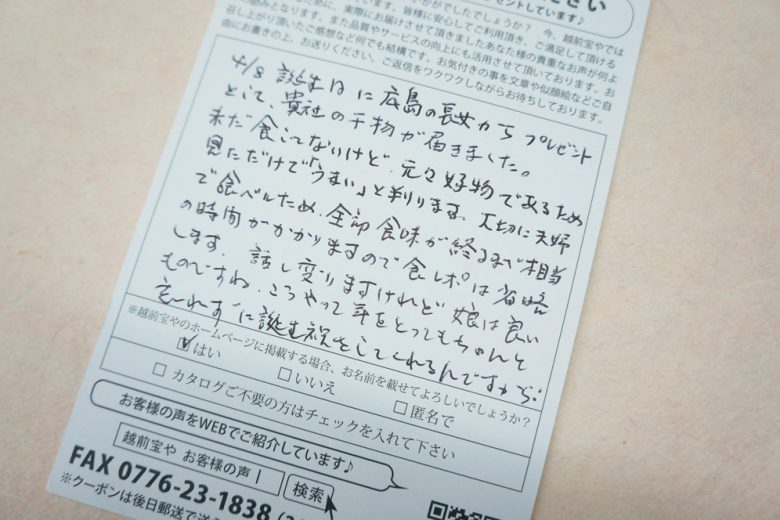 ださい
ゼントしています♪
がでしたでしょうか? 今、越前宝やでは
皆様に安心してご利用頂き、ご満足して頂ける
実際にお届けさせて頂きましたあなた様の貴重なお声が何よ
の励みとなります。また品質やサービスの向上にも活用させて頂いております。お
召し上がり頂いたご感想など何でも結構です。お気付きの事を文章や似顔絵などご自
由にお書きの上、お送りください。ご返信をワクワクしながらお待ちしております。
4/8 誕生日に広島の長女からプレゼント
として、貴社の干物が届きました。
未だ食してないけど、元々好物であるため
見ただけで「うまい」と判ります。大切に夫婦
で食べルため、全部食味が終るまで相当
の時間がかかりますので食レポは省略
します。話し変りますけれど娘は良い
ものですね。こうやって年をとってもちゃんと
忘れずに誕生祝をしてくれるんですから:
※越前宝やのホームページに掲載する場合、お名前を載せてよろしいでしょうか?
☑はい □いいえ □匿名で
□ カタログご不要の方はチェックを入れて下さい
お客様の声をWEBでご紹介しています♪
越前宝や お客様の声 検索
FAX 0776-23-1838
※クーポンは後日郵送で送